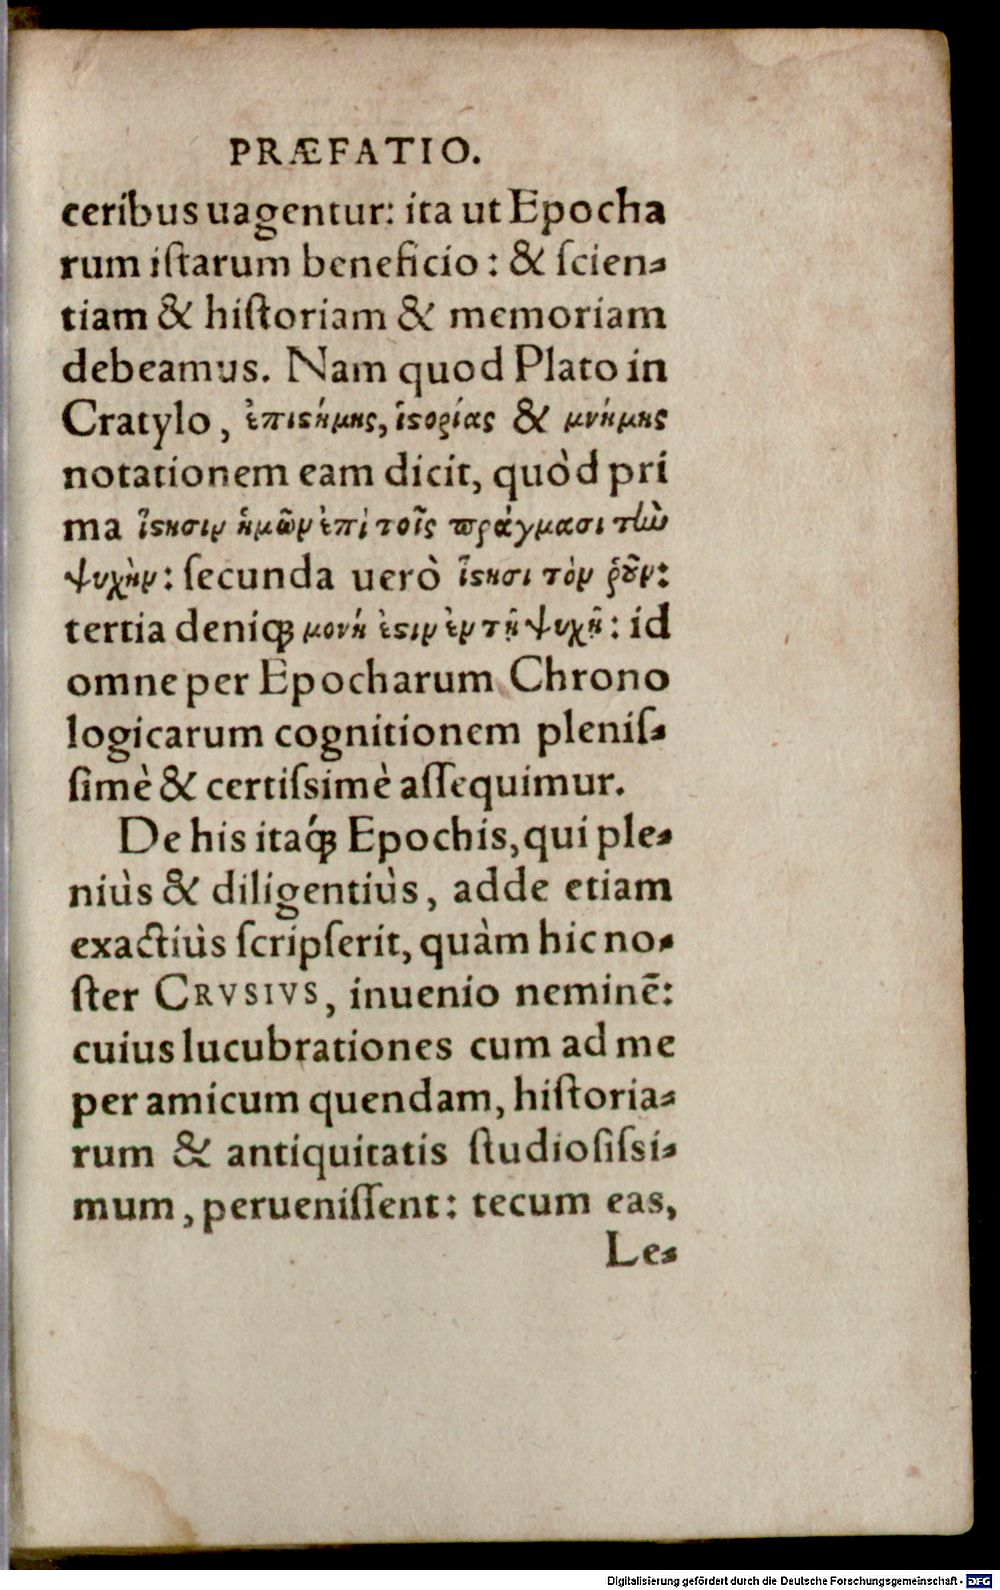 PRÆFATIO.
ceribus uagentur: ita ut Epocha
rum iſtarum beneficio: & ſcien-
tiam & hiſtoriam & memoriam
debeamus. Nam quod Plato in
Cratylo, ἐπιϛήμης, ἱϛορίας & μνήμης
notationem eam dicit, quòd pri
ma ἵϛησιν ἡμῶν ἐπὶ τοῖς πράγμασι τὴν
ψυχὴν: ſecunda uerò ἵϛησι τὸν ῥοῦν:
tertia deniqꝫ μονή ἐϛιν ἐν τῇ ψυχῇ: id
omne per Epocharum Chrono
logicarum cognitionem pleniſ-
ſimè & certiſsimè aſſequimur.
De his itaq́ꝫ Epochis, qui ple-
niùs & diligentiùs, adde etiam
exactiùs ſcripſerit, quàm hic no-
ſter CRVSIVS, inuenio neminē:
cuius lucubrationes cum ad me
per amicum quendam, hiſtoria-
rum & antiquitatis ſtudioſiſsi-
mum, perueniſſent: tecum eas,
Le-
Digitalisierung gefördert durch die Deutsche Forschungsgemeinschaft - DFG